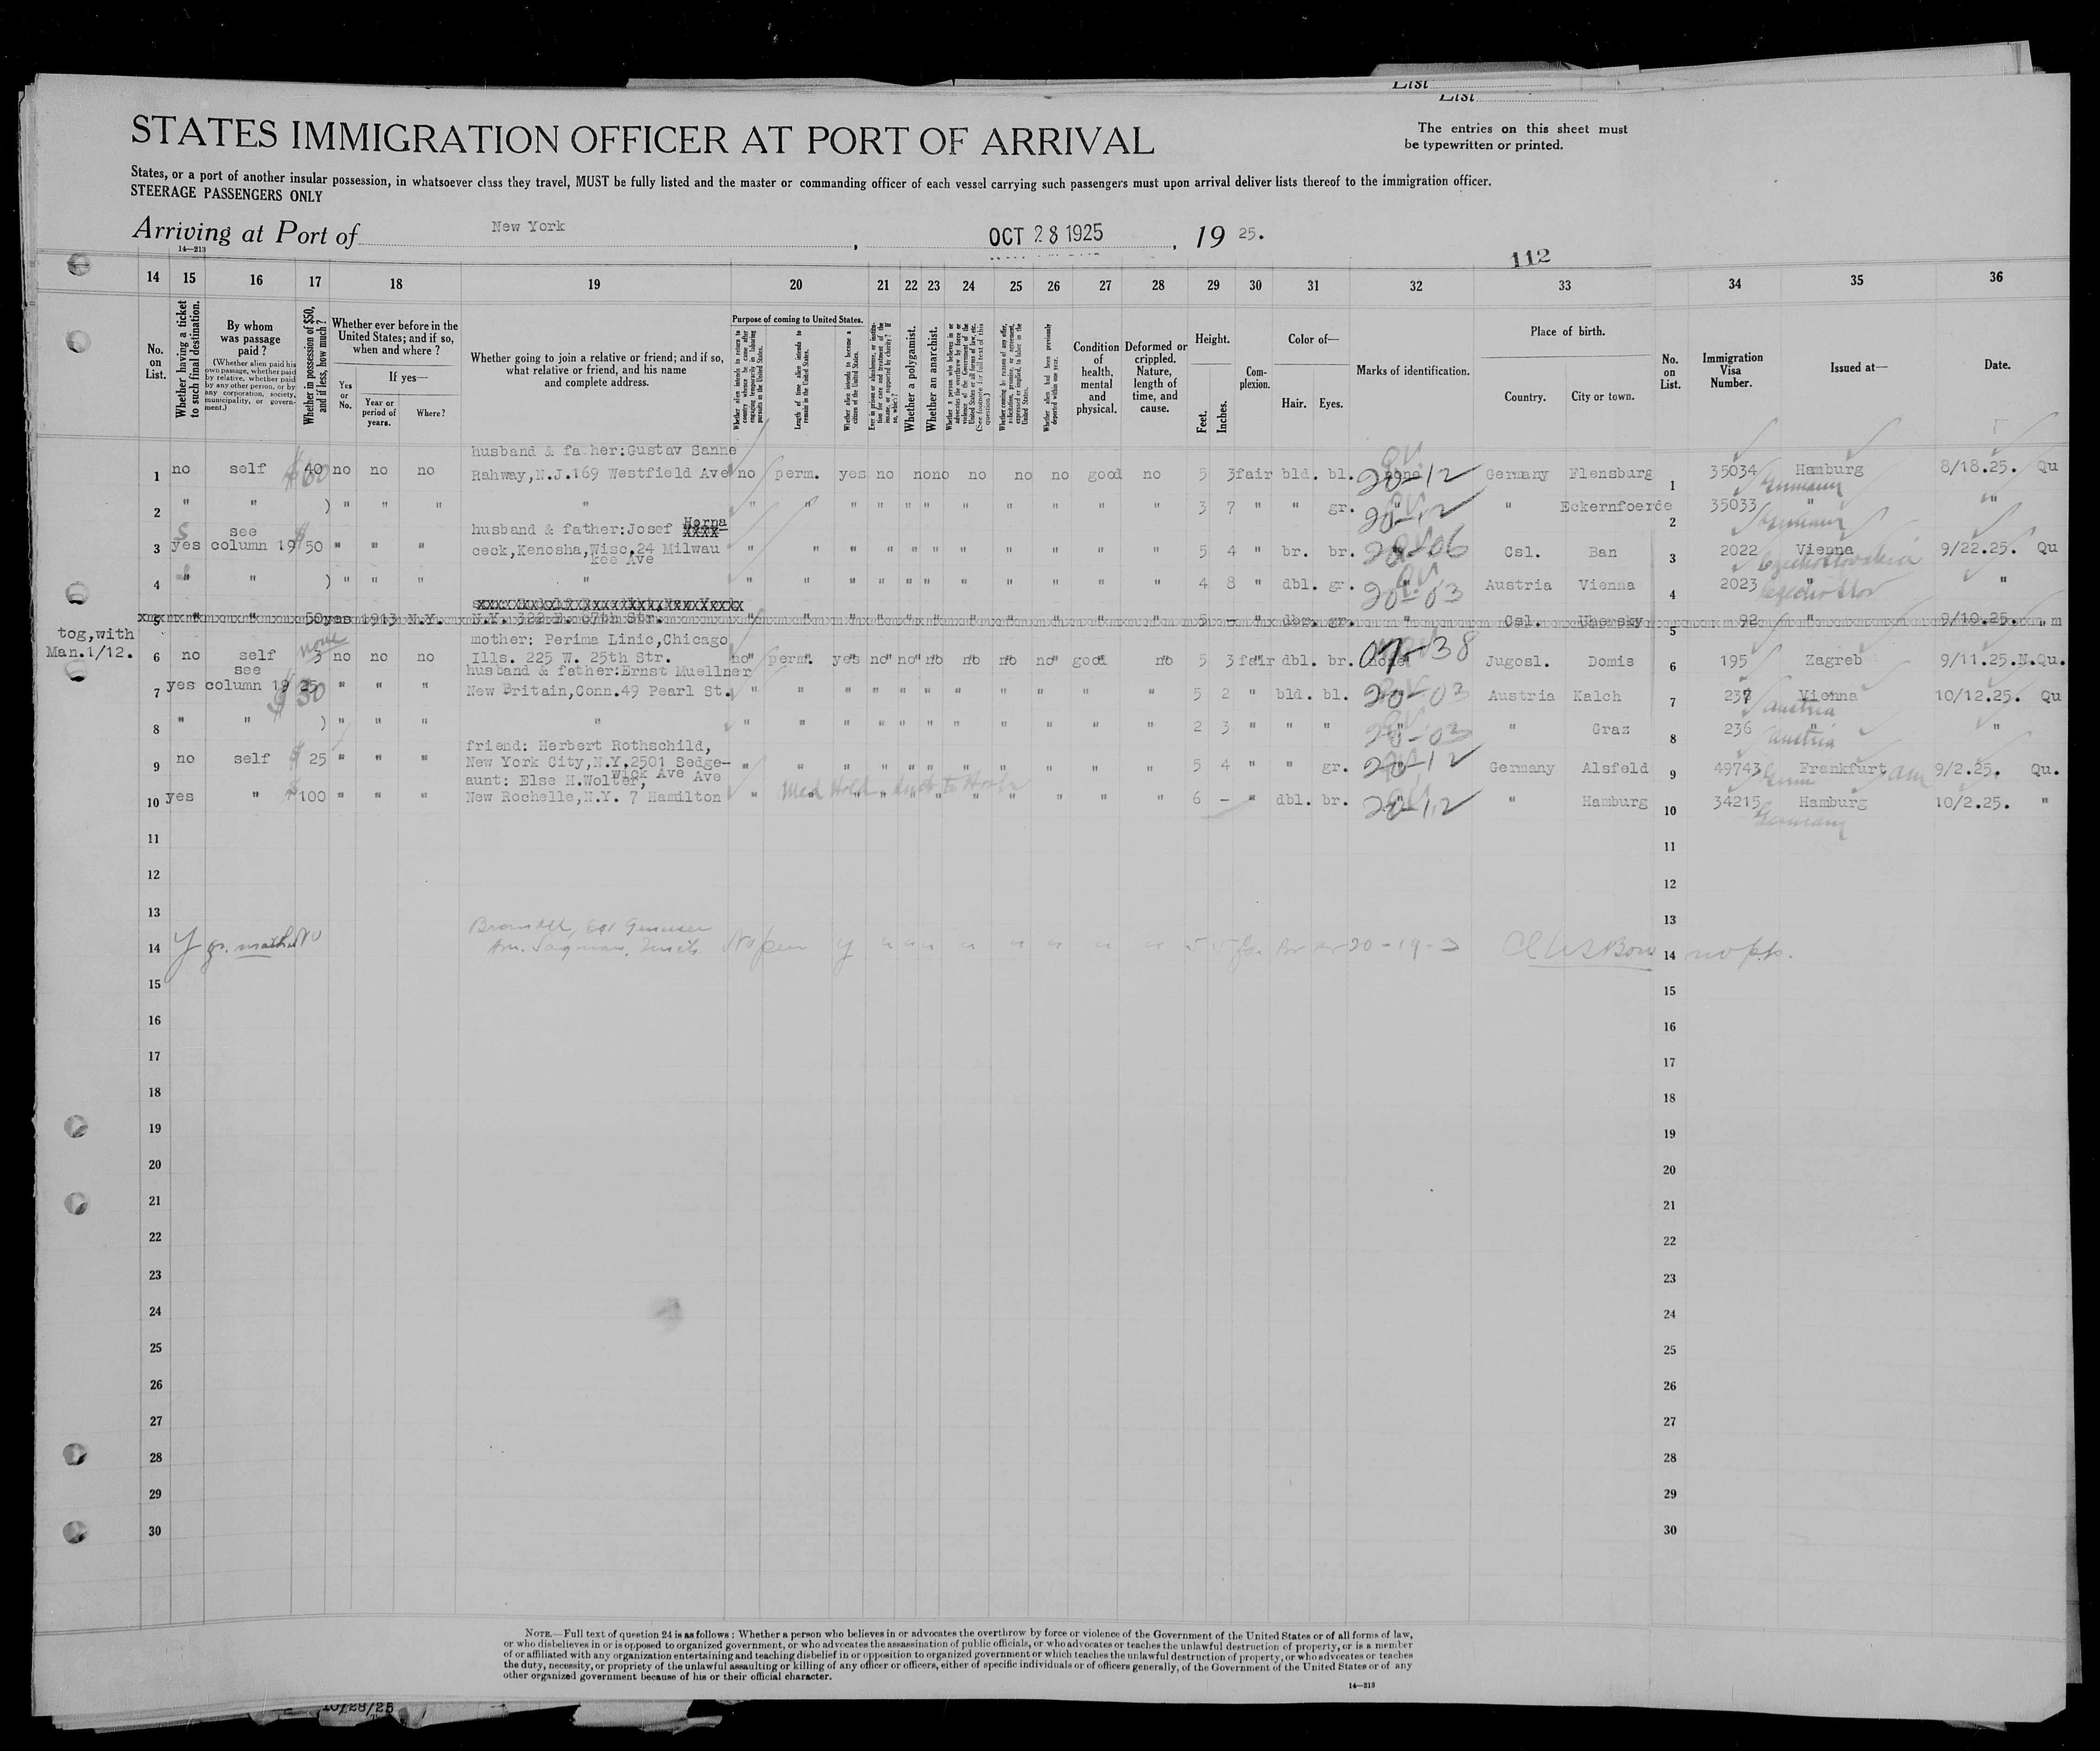 List
List
STATES IMMIGRATION OFFICER AT PORT OF ARRIVAL
The entries on this sheet must
be typewritten or printed.
States, or a port of another insular possession, in whatsoever class they travel, MUST be fully listed and the master or commanding officer of each vessel carrying such passengers must upon arrival deliver lists thereof to the immigration officer.
STEERAGE PASSENGERS ONLY
Arriving at Port of New York, OCT 28 1925, 19 25.
14—213
112
14 15 16 17 18 19 20 21 22 23 24 25 26 27 28 29 30 31 32 33 34 35 36
No. on List.
Whether having a ticket to such final destination.
By whom was passage paid?
(Whether alien paid his own passage, whether paid by relative, whether paid by any other person, or by any corporation, society, municipality, or government.)
Whether in possession of $50, and if less, how much?
Whether ever before in the United States; and if so, when and where?
Yes or No.
If yes—
Year or period of years.
Where?
Whether going to join a relative or friend; and if so, what relative or friend, and his name and complete address.
Purpose of coming to United States.
Whether alien intends to return to country whence he came after engaging temporarily in laboring pursuits in the United States.
Length of time alien intends to remain in the United States.
Whether alien intends to become a citizen of the United States.
Ever in prison or almshouse, or institution for care and treatment of the insane, or supported by charity? If so, which?
Whether a polygamist.
Whether an anarchist.
Whether a person who believes in or advocates the overthrow by force or violence of the Government of the United States or all forms of law, etc. (See footnote for full text of this question.)
Whether coming by reason of any offer, solicitation, promise, or agreement, expressed or implied, to labor in the United States.
Whether alien had been previously deported within one year.
Condition of health, mental and physical.
Deformed or crippled. Nature, length of time, and cause.
Height.
Feet. Inches.
Complexion.
Color of—
Hair. Eyes.
Marks of identification.
Place of birth.
Country. City or town.
No. on List.
Immigration Visa Number.
Issued at—
Date.
husband & father:Gustav Sanne
1 no self $ 40 no no no Rahway,N.J.169 Westfield Ave no perm. yes no no no no no no good no 5 3 fair bld. bl. none 20-12 Germany Flensburg 1 35034 Hamburg 8/18.25. Qu
Germany
2 " " ) " " " " " " " " " " " " " " " 3 7 " " gr. 20-12 " Eckernfoerde 2 35033 " " "
Germany
see husband & father:Josef Horna
3 yes column 19 $ 50 " " " ceck,Kenosha,Wisc.24 Milwau " " " " " " " " " " " 5 4 " br. br. 20-06 Csl. Ban 3 2022 Vienna 9/22.25. Qu
kee Ave
Czechoslovakia
4 " " ) " " " " " " " " " " " " " " " 4 8 " dbl. gr. 20-03 Austria Vienna 4 2023 " "
Czechoslov
5 " " 50 yes 1913 N.Y. N.Y. 322 E. 67th Str. " " " " " " " " " " " 5 — " dbr. gr. " Csl. Uhersky 5 92 " 9/10.25.
tog,with
Man.1/12.
mother: Perima Linic,Chicago
none
6 no self 3 no no no Ills. 225 W. 25th Str. no perm. yes no no no no no no good no 5 3 fair dbl. br. none 07-38 Jugosl. Domis 6 195 Zagreb 9/11.25.N.Qu.
see husband & father:Ernst Muellner
7 yes column 19 25 $ 30 " " " New Britain,Conn.49 Pearl St. " " " " " " " " " " " 5 2 " bld. bl. 20-03 Austria Kalch 7 237 Vienna 10/12.25. Qu
Austria
8 " " ) " " " " " " " " " " " " " " " 2 3 " " " 20-03 " Graz 8 236 " "
Austria
friend: Herbert Rothschild,
9 no self $ 25 " " " New York City,N.Y.2501 Sedge— " " " " " " " " " " " 5 4 " " gr. 20-12 Germany Alsfeld 9 49743 Frankfurt am 9/2.25. Qu.
wick Ave Ave
aunt: Else H.Wolter,
Med Hold
10 yes " $ 100 " " " New Rochelle,N.Y. 7 Hamilton " " " " " " " " " " " 6 — " dbl. br. 20-12 " Hamburg 10 34215 Hamburg 10/2.25. "
Germany
11 11
12 12
13 13
14 y gr. mother No No perm y " " " " " " " " 5 5 fa Br Br 20-19-3 14 no pp.
15 15
16 16
17 17
18 18
19 19
20 20
21 21
22 22
23 23
24 24
25 25
26 26
27 27
28 28
29 29
30 30
NOTE.—Full text of question 24 is as follows: Whether a person who believes in or advocates the overthrow by force or violence of the Government of the United States or of all forms of law,
or who disbelieves in or is opposed to organized government, or who advocates the assassination of public officials, or who advocates or teaches the unlawful destruction of property, or is a member
of or affiliated with any organization entertaining and teaching disbelief in or opposition to organized government or which teaches the unlawful destruction of property, or who advocates or teaches
the duty, necessity, or propriety of the unlawful assaulting or killing of any officer or officers, either of specific individuals or of officers generally, of the Government of the United States or of any
other organized government because of his or their official character.
14—213
10/28/25